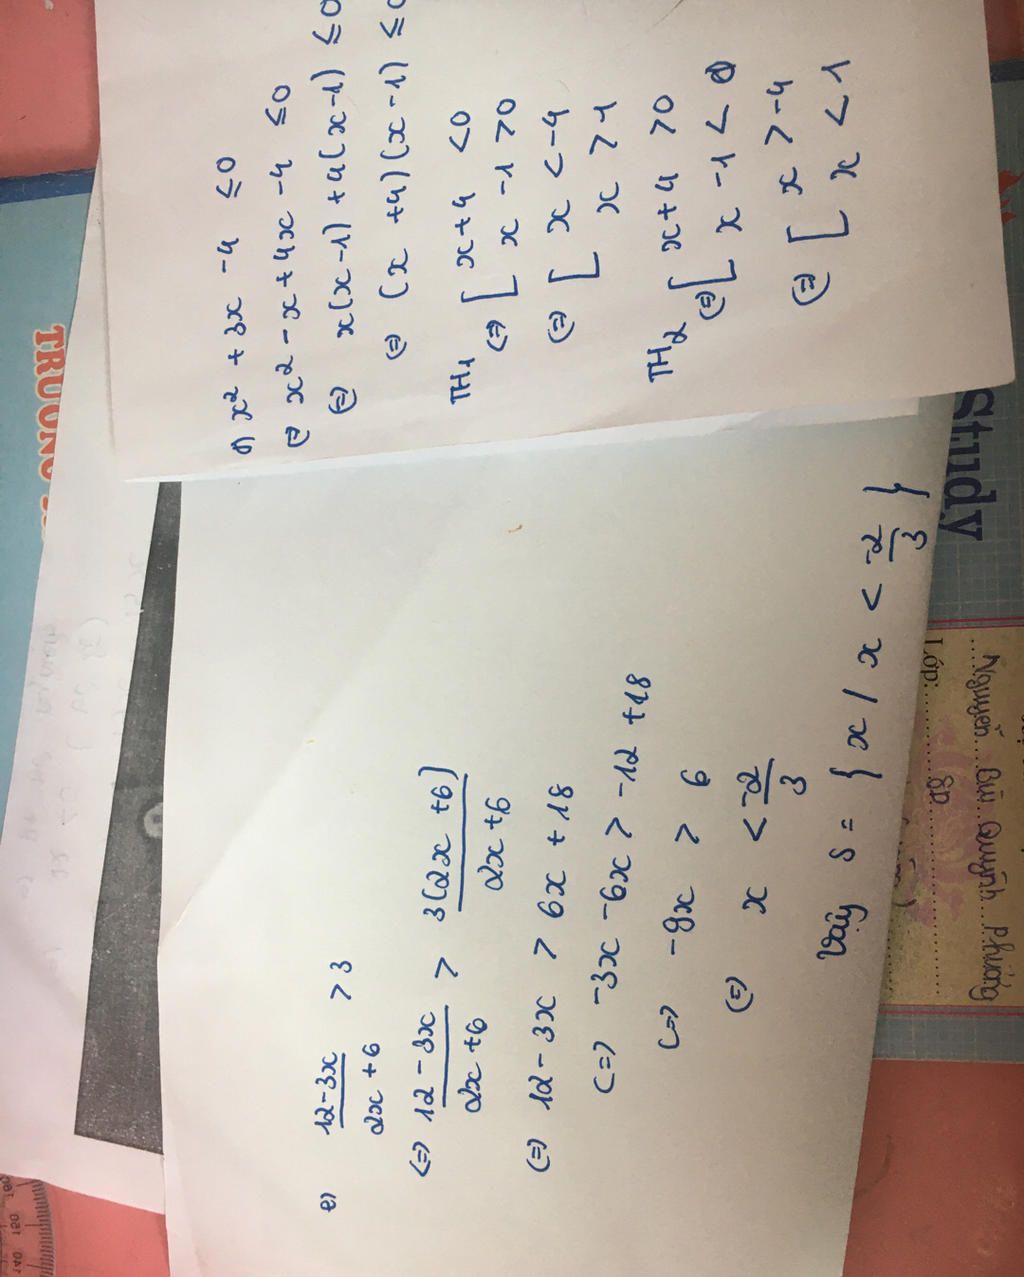 e) 12-3x / 2x+6 > 3
(=) 12-3x / 2x+6 > 3(2x+6) / 2x+6
(=) 12-3x > 6x+18
(=) -3x-6x > -12+18
(=) -9x > 6
(=) x < -2/3
Vậy S = { x / x < -2/3 }
x² + 3x - 4 ≤ 0
(=) x² - x + 4x - 4 ≤ 0
(=) x(x-1) + 4(x-1) ≤ 0
(=) (x+4)(x-1) ≤ 0
TH1 [ x+4 < 0
(=) [ x-1 > 0
(=) [ x < -4
x > 1
TH2 [ x+4 > 0
(=) [ x-1 < 0
(=) [ x > -4
x < 1
TRƯỜNG
Study
Lớp:
Nguyễn Bùi Quỳnh Phương